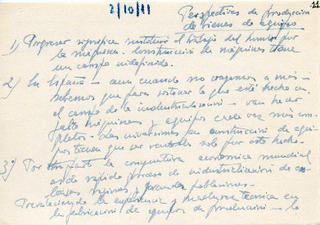 2/10/71
11
Perspectivas de producción
de bienes de equipo
1) Progresar significa sustituir el trabajo del hombre por
la máquina. Construcción de máquinas tiene
un campo indefinido.
2) En España - aun cuando no
sabemos que para sustituir lo que está hecho en
el campo de la industrialización - van hacer
falta máquinas y equipos cada vez más com
plejos. Las inversiones en construcción de equi-
pos tienen que ser rentables solo por este hecho.
3º) Por la coyuntura económica mundial
rápido proceso de industrialización de
y grandes poblaciones.
la experiencia y técnica en
la fabricación de equipos de producción - lo